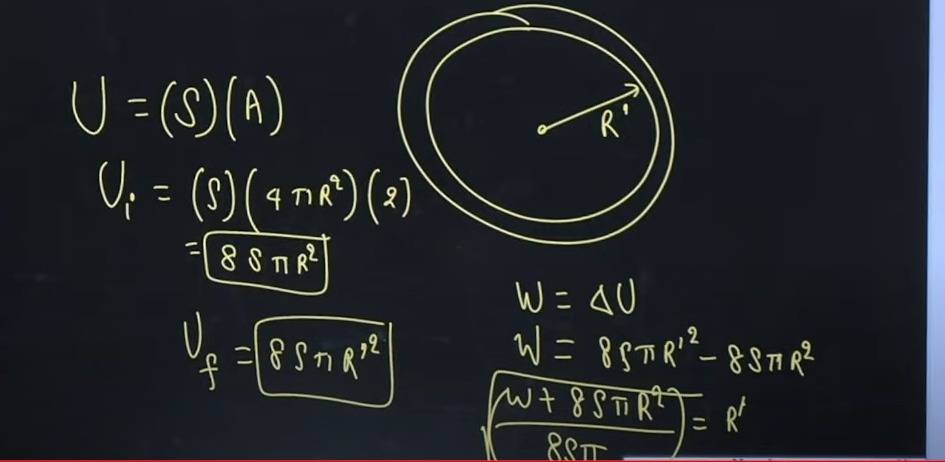 U = (S)(A)
Uᵢ = (S)(4πR²)(2)
= 8SπR²
U_f = 8SπR'²
R'
W = ΔU
W = 8SπR'² - 8SπR²
√((W + 8SπR²)/(8Sπ)) = R'